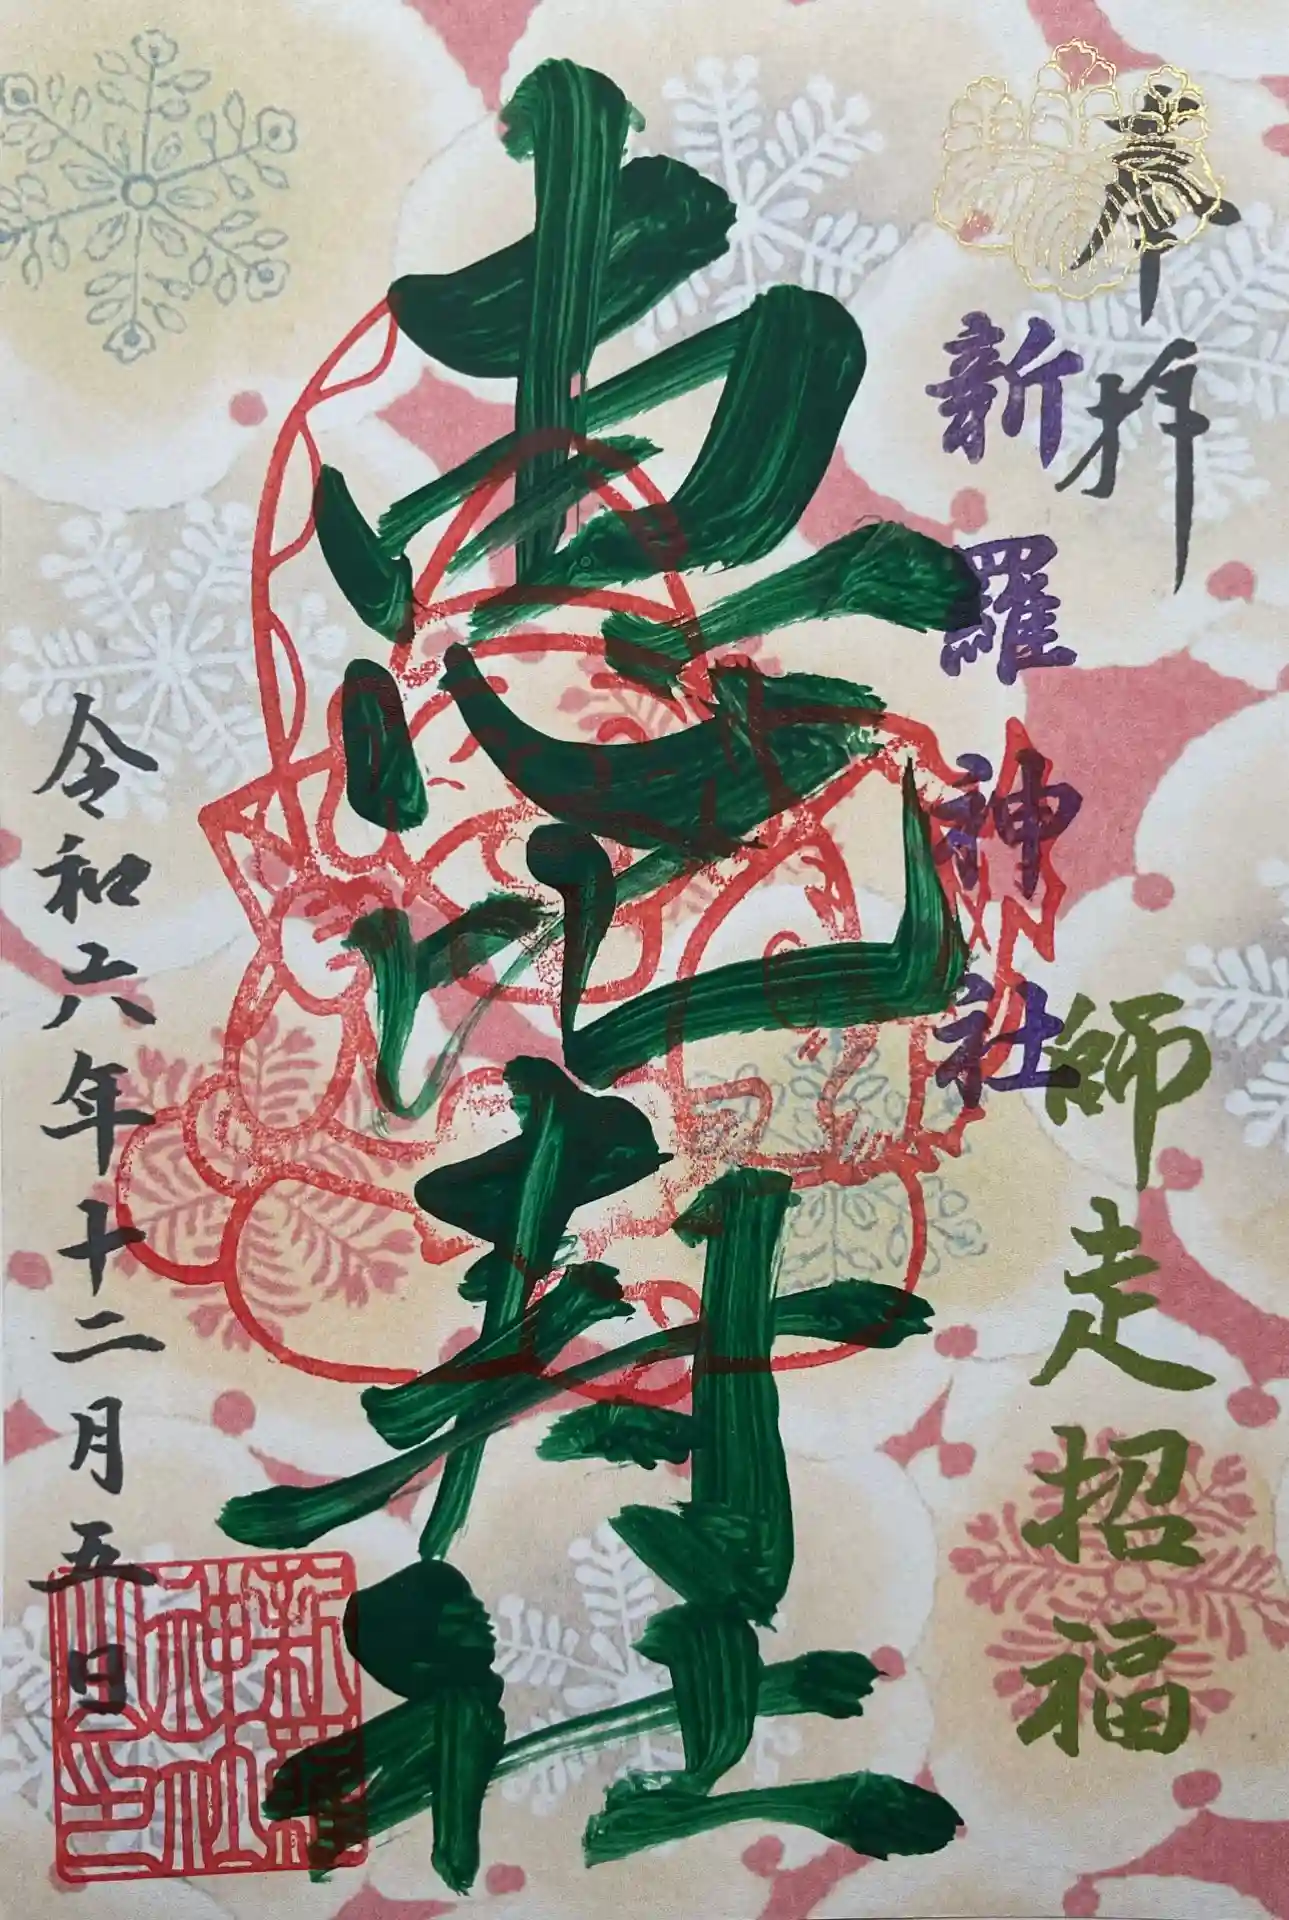 奉拝
新羅神社
師走招福
恵比寿社
令和六年十二月五日
新羅神社之印